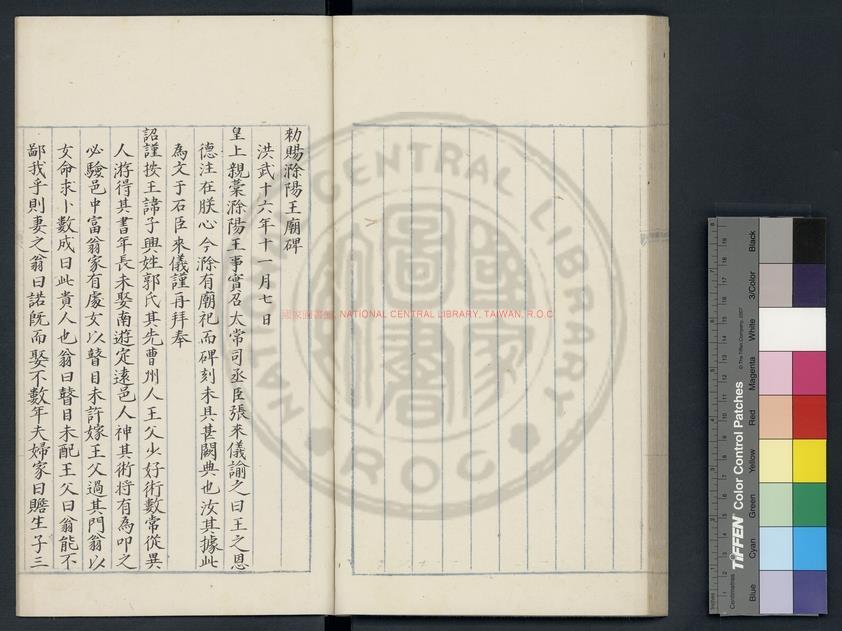 勑賜滁陽王廟碑
洪武十六年十一月七日
皇上親藁滁陽王事實召太常司丞臣張來儀諭之曰王之恩
德注在朕心今滁有廟祀而碑刻未具甚闕典也汝其據此
為文于石臣來儀謹再拜奉
詔謹按王諱子興姓郭氏其先曹州人王父少好術數常從異
人游得其書年長未娶南遊定遠邑人神其術將有為叩之
必驗邑中富翁家有處女以瞽目未許嫁王父過其門翁以
女命求卜數成曰此貴人也翁曰瞽目未配王父曰翁能不
鄙我乎則妻之翁曰諾既而娶不數年夫婦家日贍生子三
國家圖書館, NATIONAL CENTRAL LIBRARY, TAIWAN, R.O.C
NATIONAL CENTRAL LIBRARY
R.O.C.
TIFFEN Color Control Patches
© The Tiffen Company, 2007
Centimetres
Inches
Blue
Cyan
Green
Yellow
Red
Magenta
White
3/Color
Black